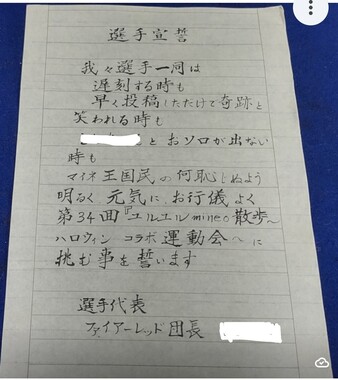 選手宣誓
我々選手一同は
遅刻する時も
早く投稿しただけで奇跡と
笑われる時も
とおソロが出ない
時も
マイネ王国民の何恥じぬよう
明るく元気に、お行儀よく
第34回『ユルユルmineo散歩〜
ハロウィンコラボ運動会へに
挑む事を誓います
選手代表
ファイアーレッド団長